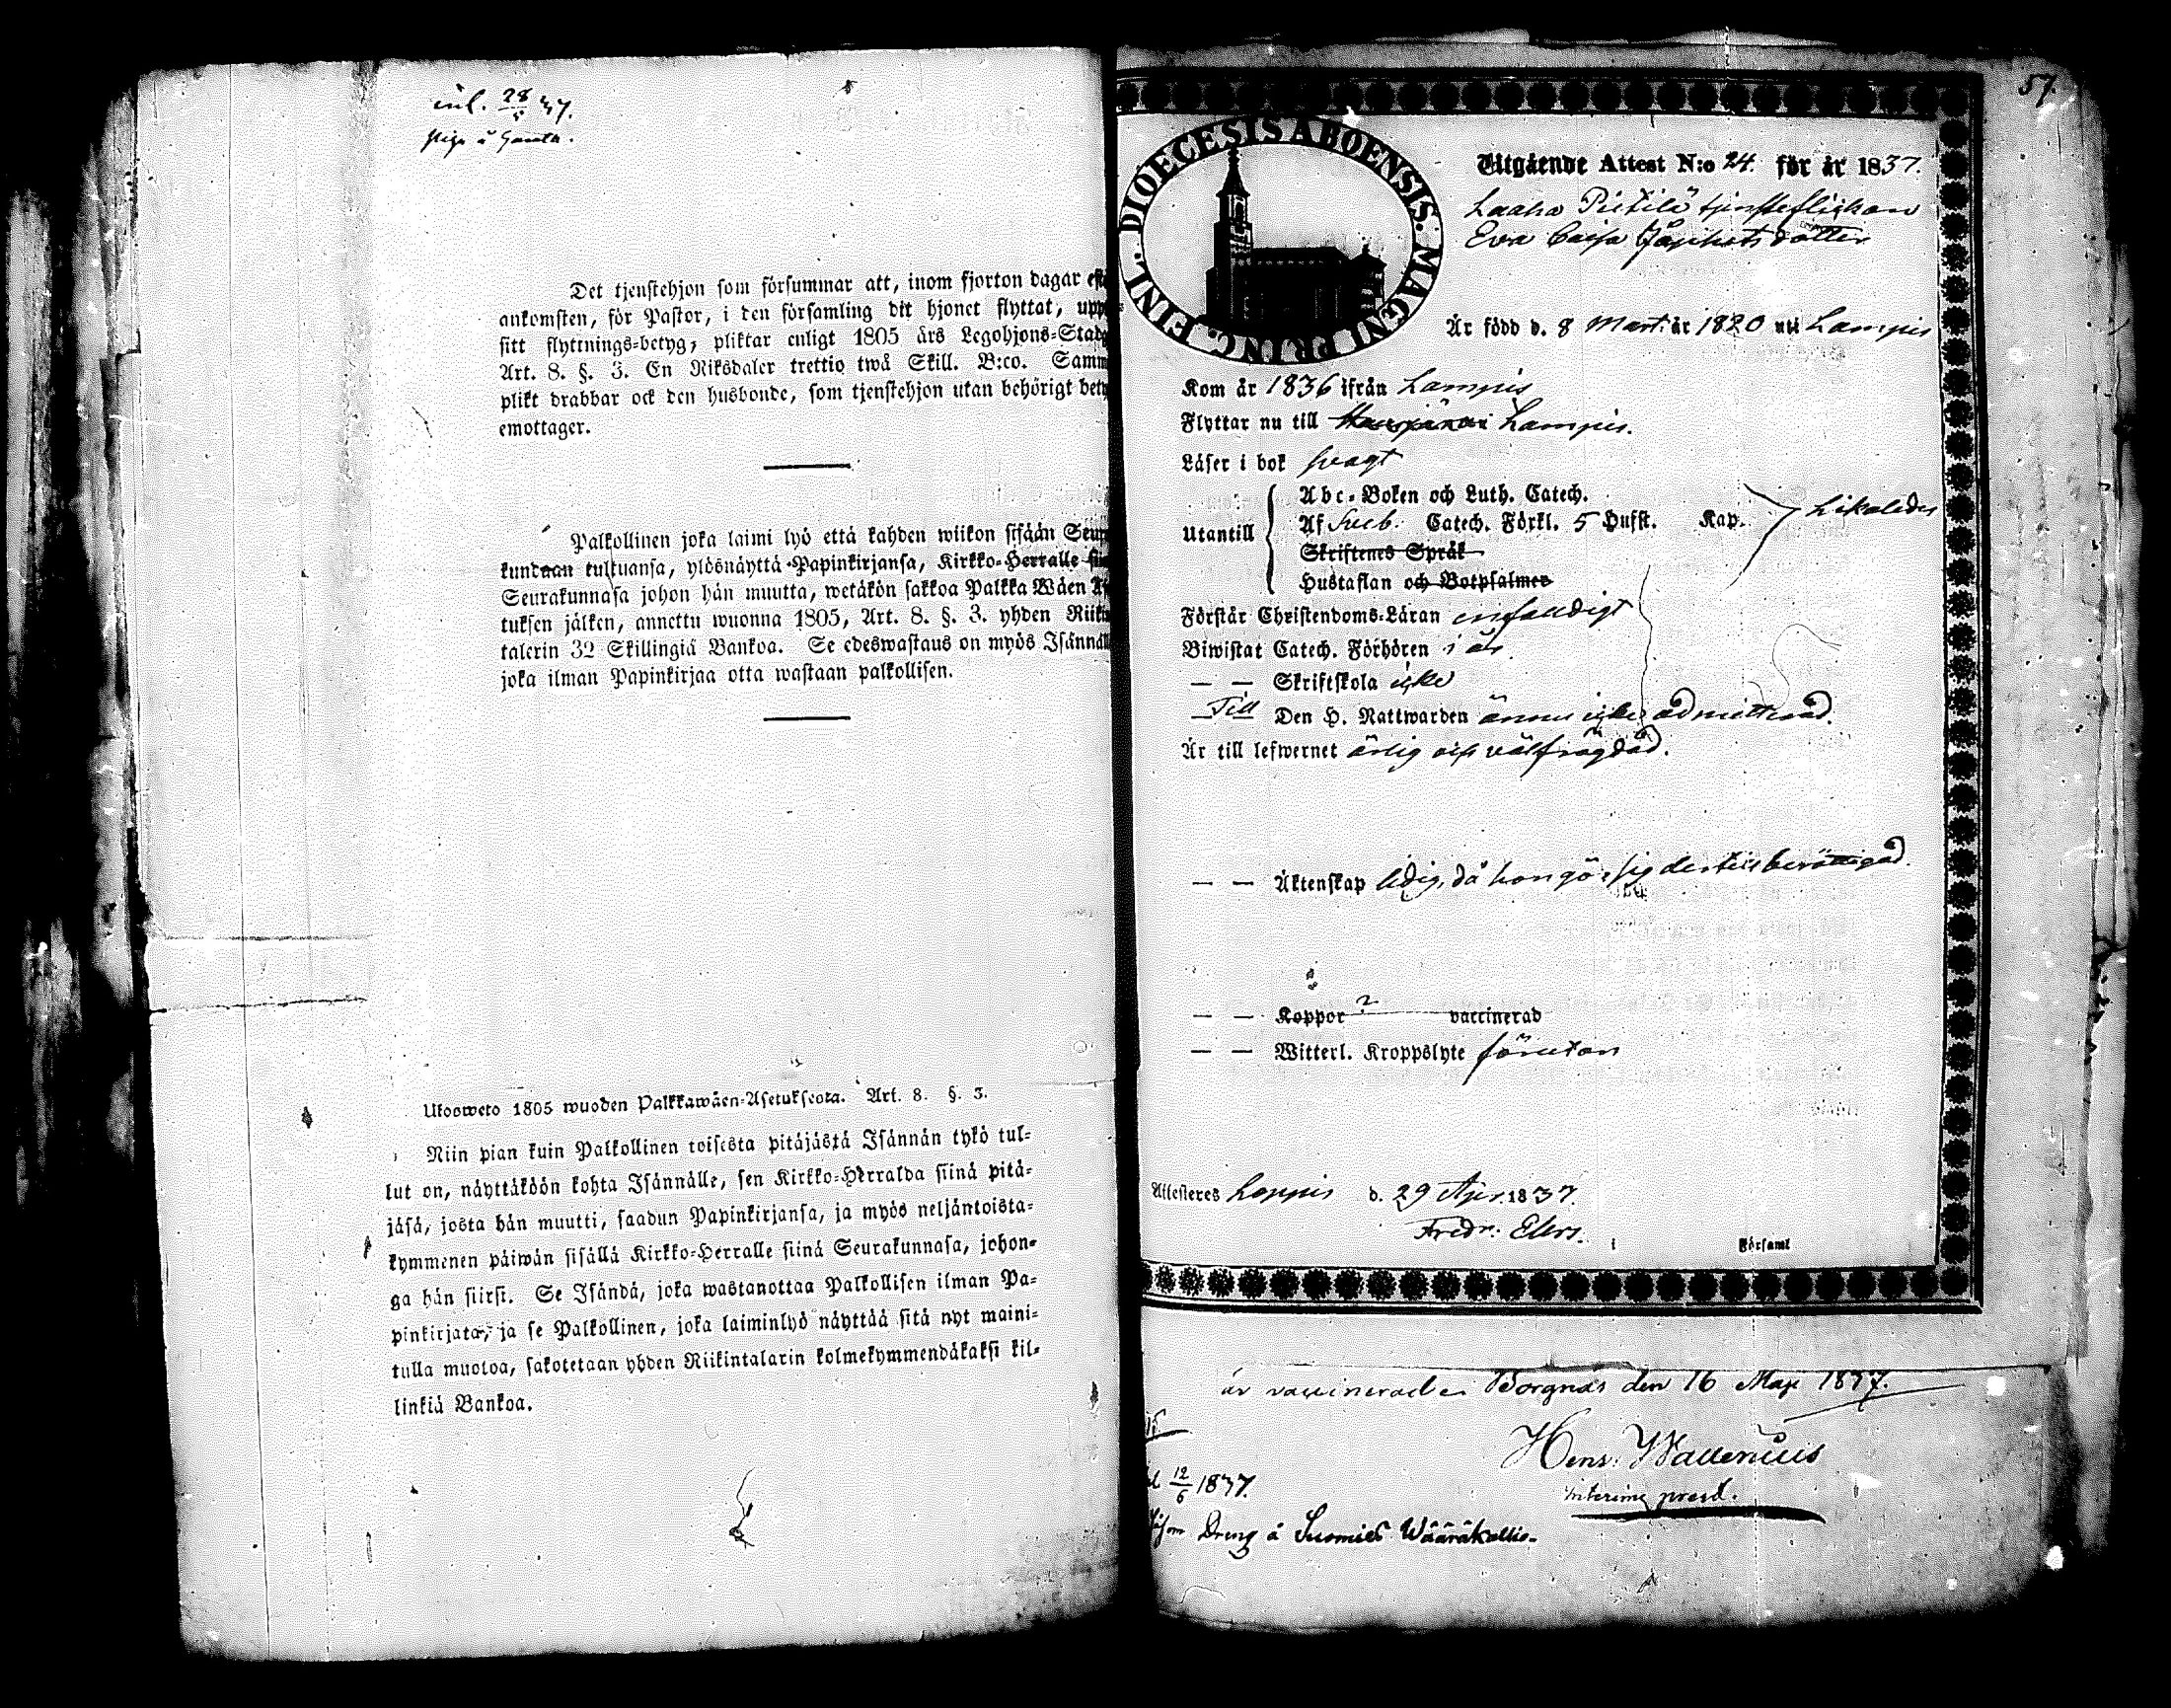 inl. 28/5 37.
Piga å
Det tjenstehjon som försummar att, inom fjorton dagar
ankomsten, för Pastor, i den församling dit hjonet flyttat,
sitt flyttnings-betyg, pliktar enligt 1805 års Legohjons-
Art. 8. §. 3. En Riksdaler trettio twå Skill. B:co.
plikt drabbar ock den husbonde, som tjenstehjon utan behörigt
emottager.
Palkollinen joka laimi lyö että kahden wiikon sisään
kundaan tultuansa, ylösnäyttä Papinkirjansa, Kirkko-Herralle
Seurakunnasa johon hän muutta, wetäkön sakkoa Palkka Wäen
tuksen jälken, annettu wuonna 1805, Art. 8. §. 3. yhden
talerin 32 Skillingiä Bankoa. Se edeswastaus on myös
joka ilman Papinkirjaa otta wastaan palkollisen.
Ulosweto 1805 wuoden Palkkawäen-Asetuksesta. Art. 8. §. 3.
Niin pian kuin Palkollinen toisesta pitäjästä Isännän tykö tul-
lut on, näyttäköön kohta Isännälle, sen Kirkko-Herralda siinä pitä-
jäsä, josta hän muutti, saadun Papinkirjansa, ja myös neljäntoista-
kymmenen päiwän sisällä Kirkko-Herralle siinä Seurakunnasa, johon-
ga hän siirsi. Se Isändä, joka wastanottaa Palkollisen ilman Pa-
pinkirjata, ja se Palkollinen, joka laiminlyö näyttää sitä nyt maini-
tulla muotoa, sakotetaan yhden Riikintalarin kolmekymmendäkaksi kil-
linkiä Bankoa.
57.
DIOECESIS ABOENSIS. MAGNI PRINC. FINL.
Utgående Attest N:o 24. för år 1837.
Laaka Pietilä tjensteflickan
Eva Caisa dotter
Är född d. 8 Mart. år 1820 uti Lampis
Kom år 1836 ifrån Lampis
Flyttar nu till Hausjärvi Lampis.
Läser i bok svagt
Utantill
Abc-Boken och Luth. Catech.
Af Sveb. Catech. Förkl. 5 Hufst. Kap. Likaledes
Skriftenes Språk
Hustaflan och Botpsalmer
Förstår Christendoms-Läran enfaldigt
Biwistat Catech. Förhören i år
— — Skriftskola icke
Till Den H. Nattwarden ännu icke admitterad.
Är till lefwernet ärlig och välfrägdad.
— — Äktenskap ledig, då hon gör sig dertill berättigad.
— — Koppor ? vaccinerad
— — Witterl. Kroppslyte förutan
Attesteres Loppis d. 29 Apr. 1837.
Fredr. Ellers.
i Församl
är vaccinerad. Borgnäs den 16 Maji 1837.
Henr. Wallenius
interims pred.
12/6 1837.
såsom Dreng å Suomies Wääräkallio.